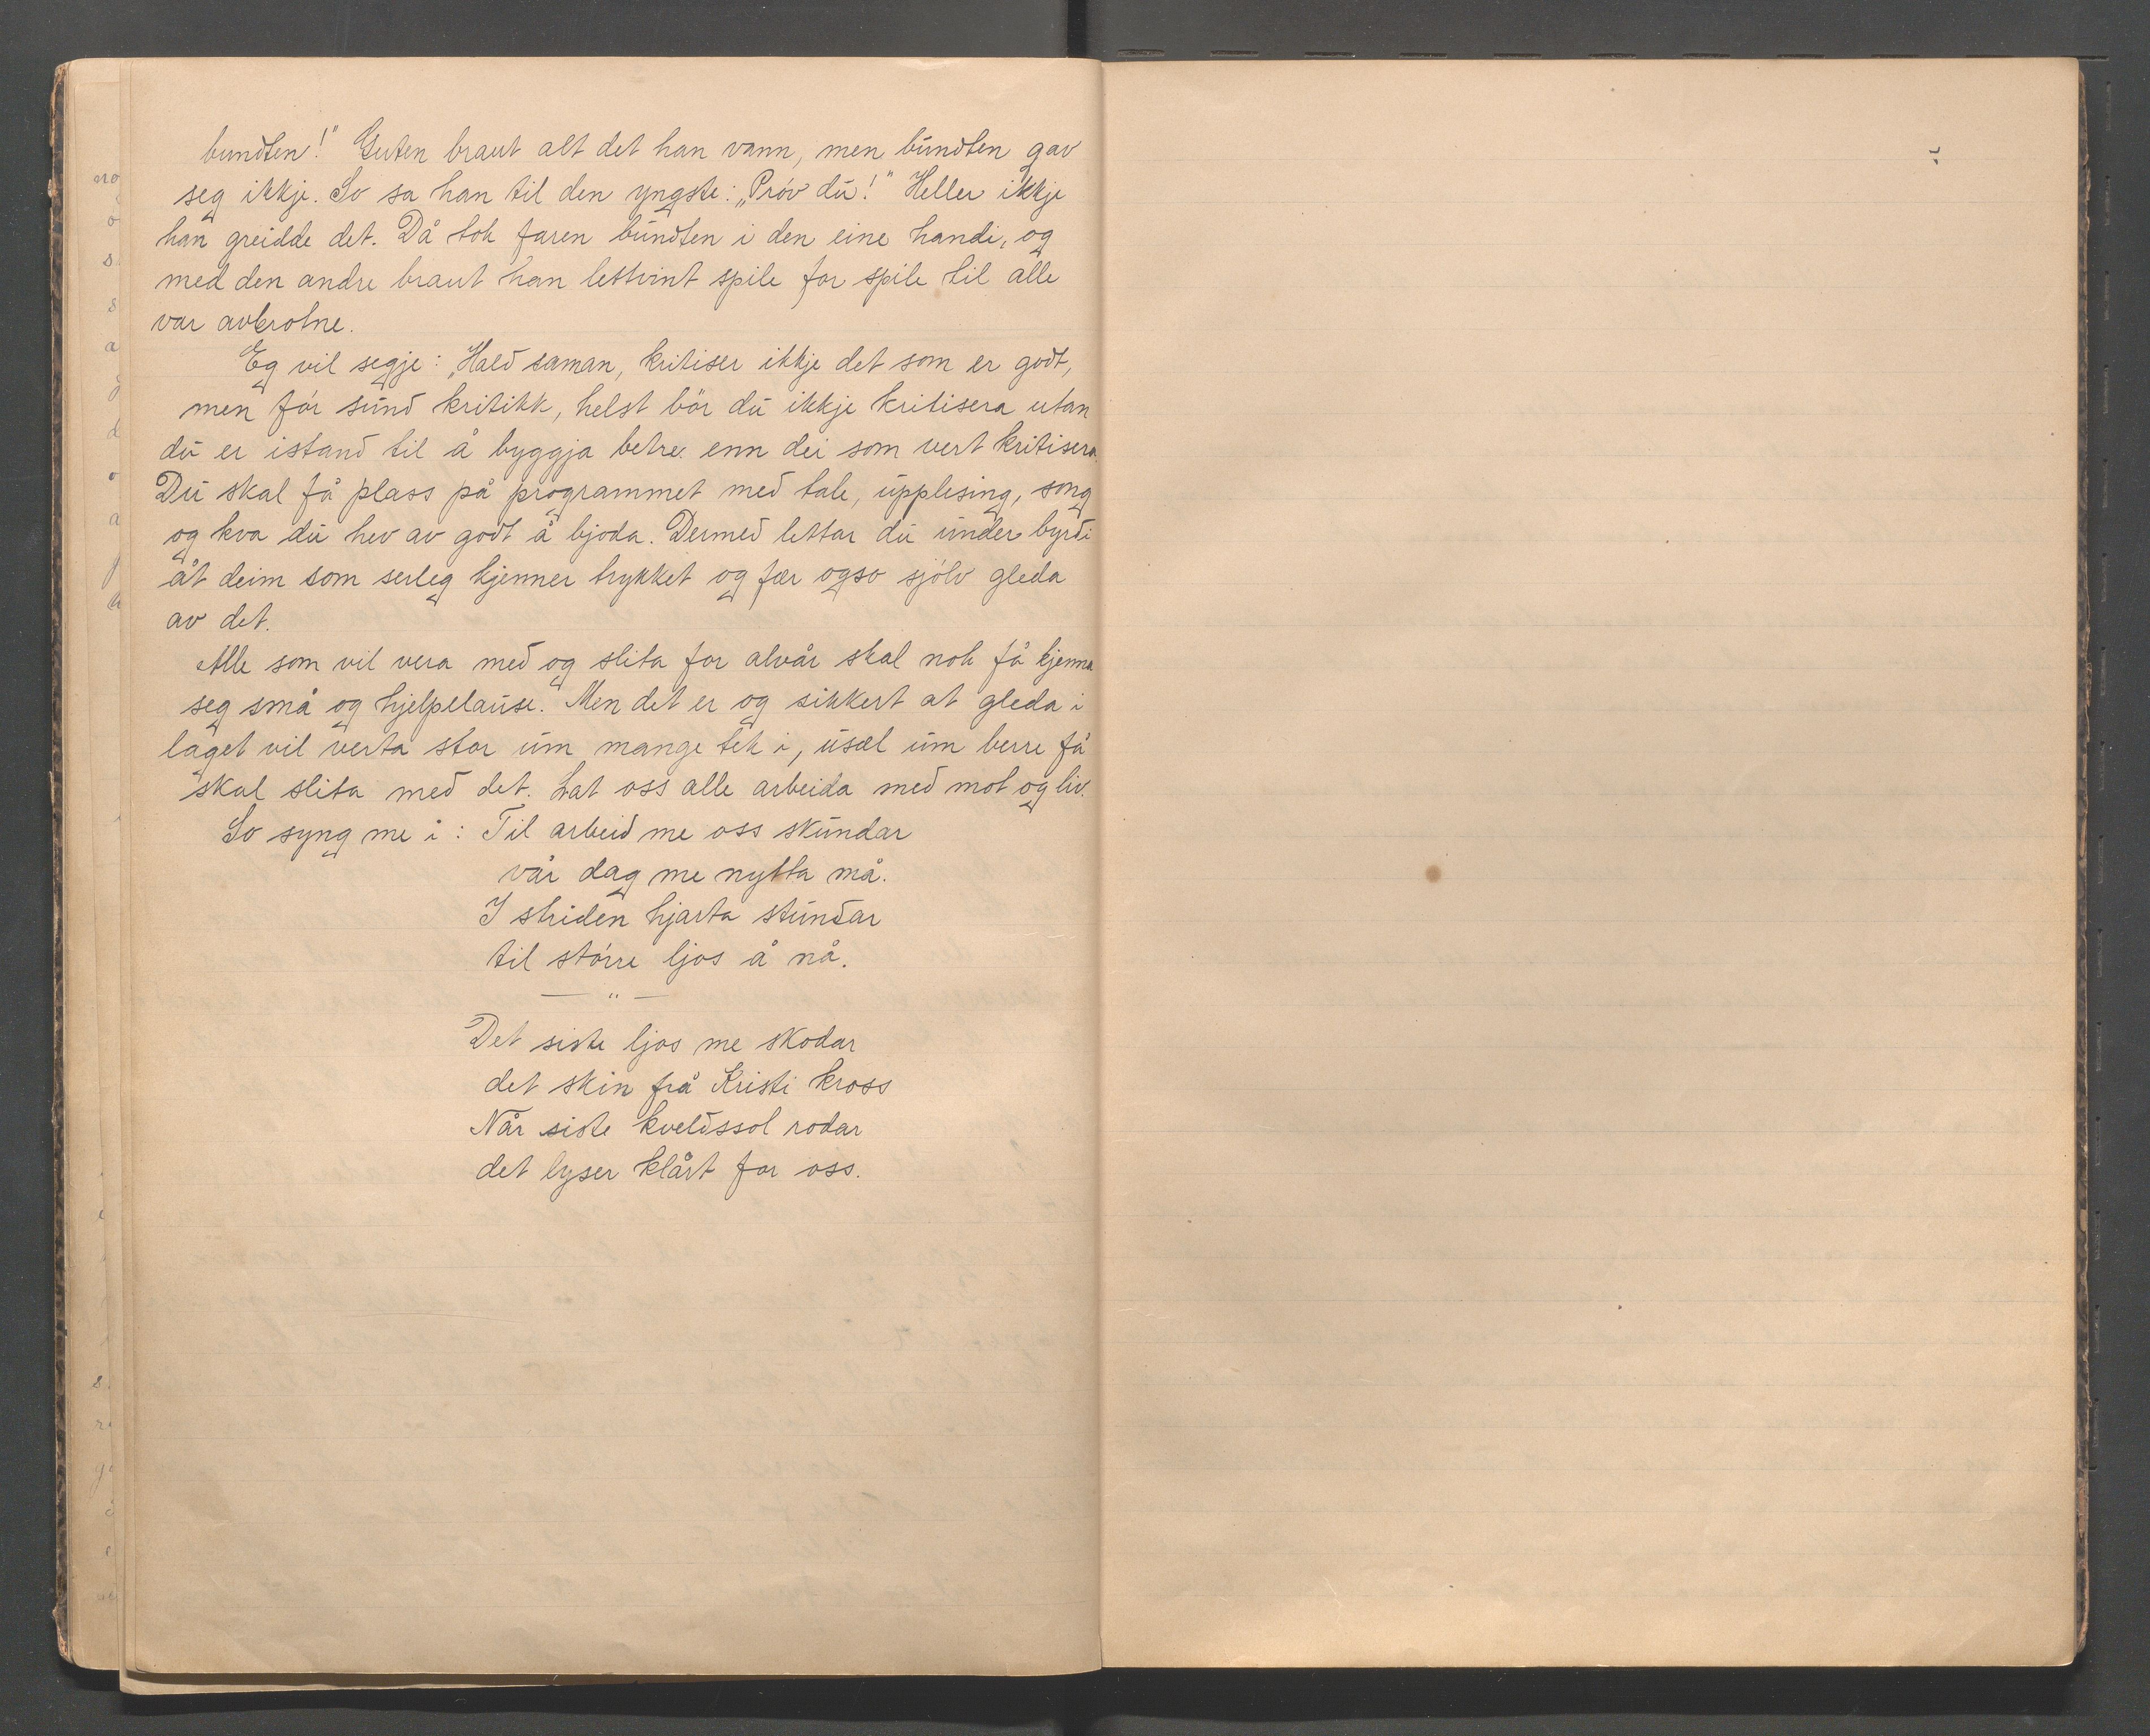 bundten!" Guten braut alt det han vann, men bundten gav
seg ikkje. So sa han til den yngste: „Próv du!" Heller ikkje
han greidde det. Då tok faren bundten i den eine handi, og
med den andre braut han lettvint spile for spile til alle
var avbrotne.
Eg vil segje: „Hald saman, kritiser ikkje det som er godt,
men fór sund kritikk, helst bör du ikkje kritisera utan
du er istand til å byggja betre enn dei som vert kritisera.
Du skal få plass på programmet med tale, upplesing, song
og kva du hev av godt å bjoda. Dermed lettar du under byrdi
åt deim som serleg kjenner trykket og fær ogso sjólv gleda
av det.
Alle som vil vera med og slita for alvår skal nok få kjenna
seg små og hjelpelause. Men det er og sikkert at gleda i
laget vil verta stor um mange tek i, usæl um berre få
skal slita med det. Lat oss alle arbeida med mot og liv.
So syng me i: Til arbeid me oss skundar
vår dag me nytta må.
I striden hjarta stundar
til stórre ljos å nå.
— " —
Det siste ljos me skodar
det skin frå Kristi kross
Når siste kveldssol rodar
det lyser klårt for oss.